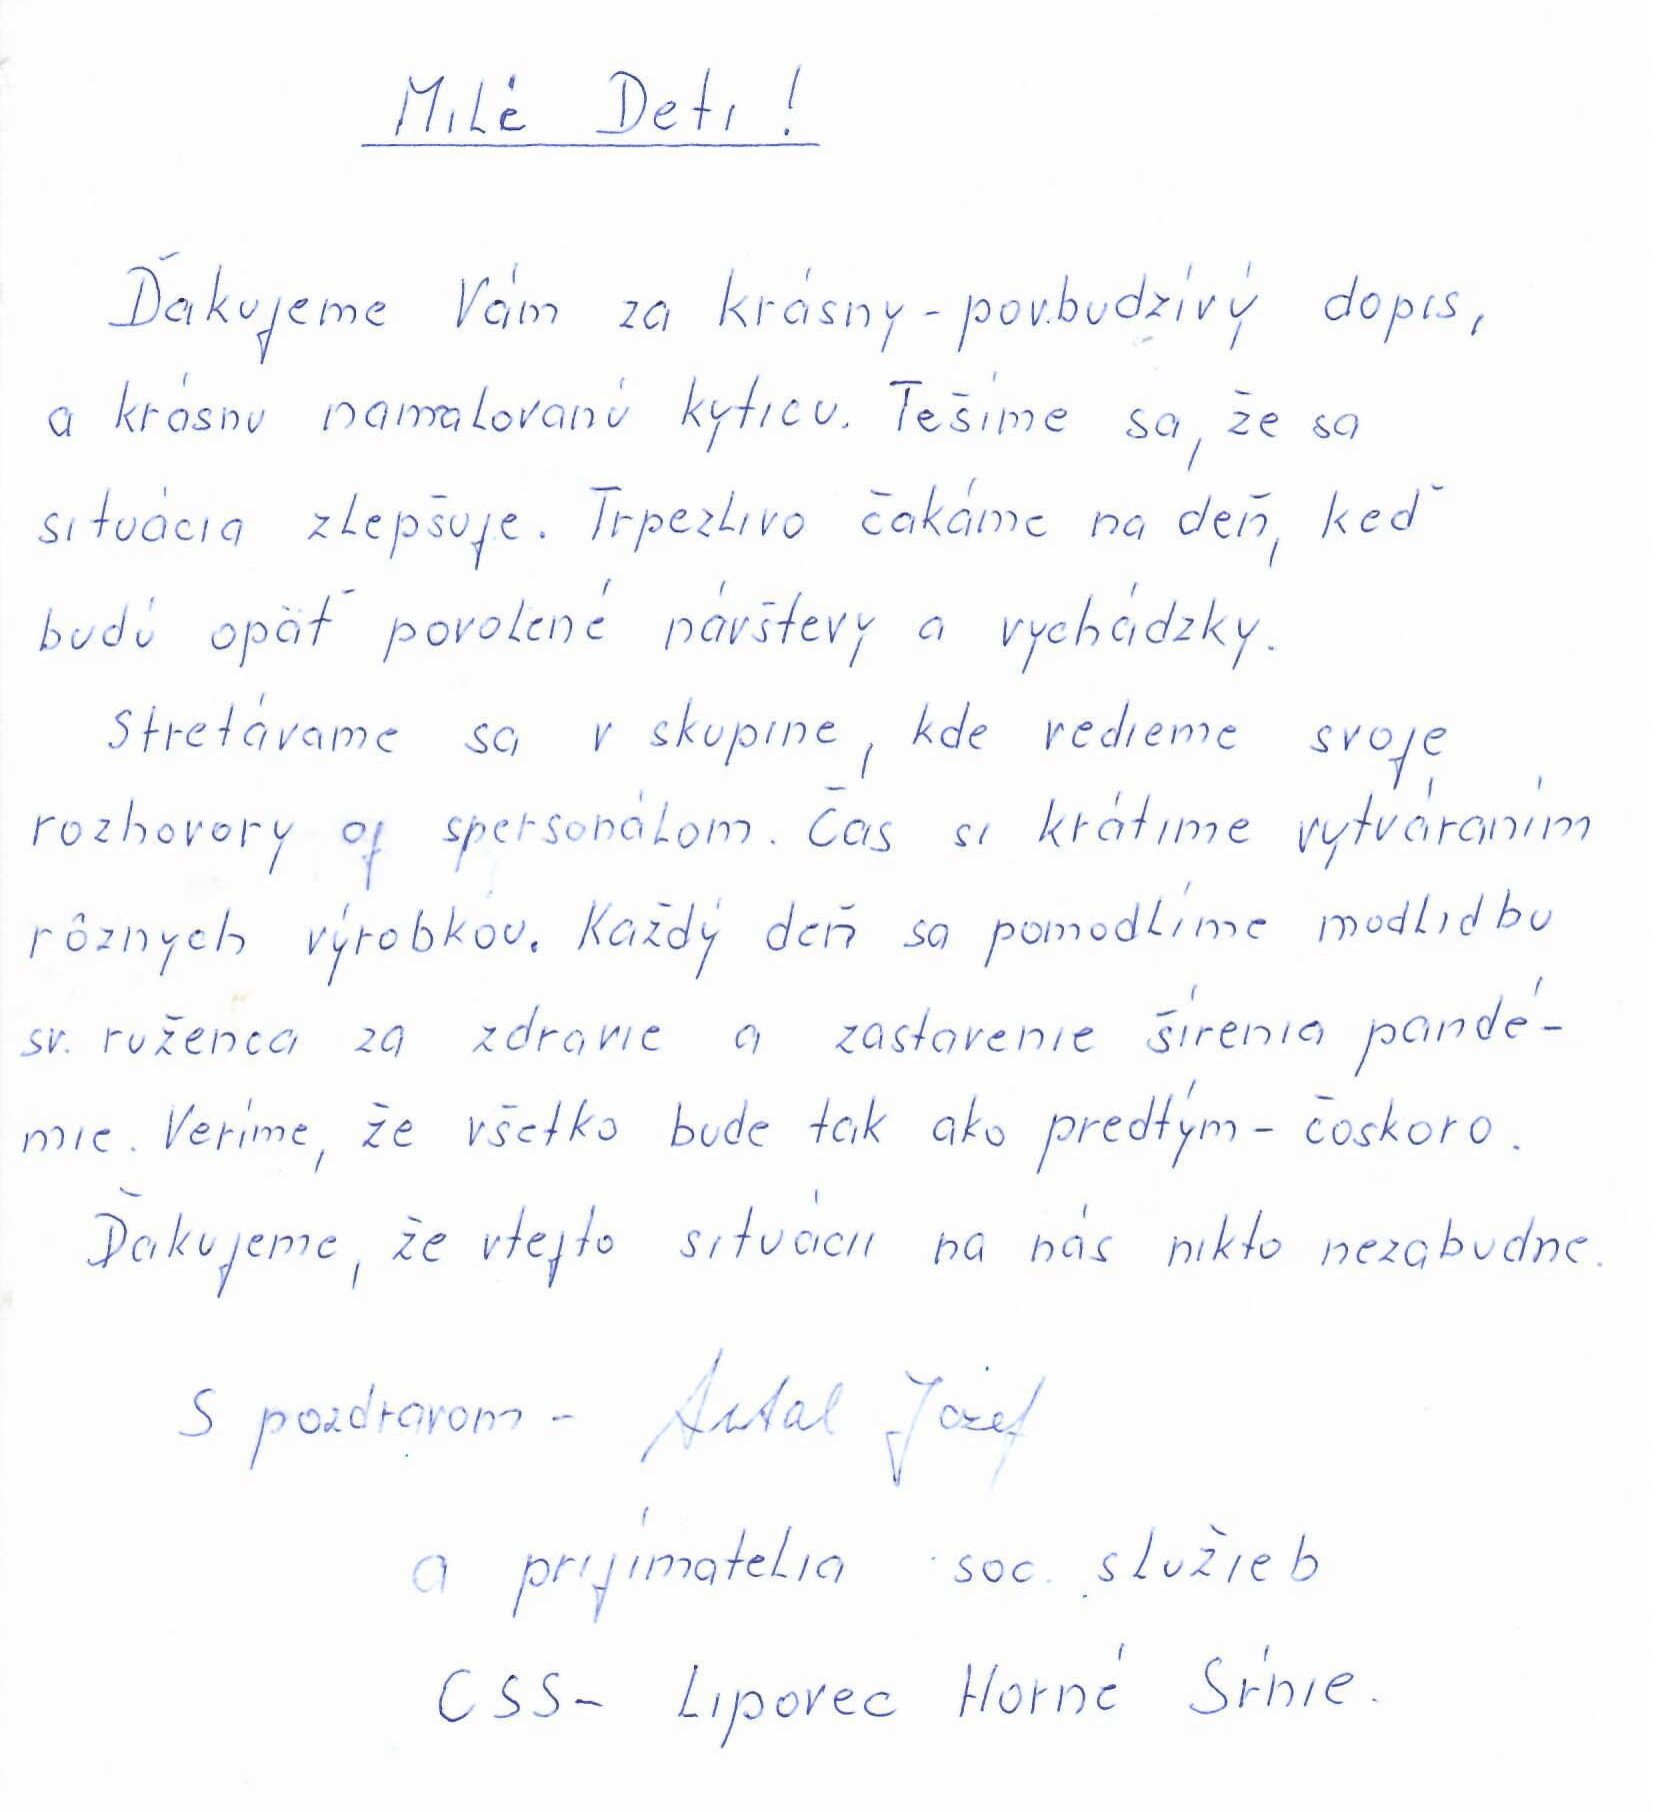 Milé Deti!
Ďakujeme Vám za krásny - pov.budzívý dopis,
a krásnu namaľovanú kyticu. Tešíme sa, že sa
situácia zlepšuje. Trpezlivo čakáme na deň, keď
budú opäť povolené návštevy a vychádzky.
Stretávame sa v skupine, kde vedieme svoje
rozhovory aj spersonálom. Čas si krátime vytváraním
rôznych výrobkov. Každý deň sa pomodlíme modlidbu
sv. ruženca za zdravie a zastavenie šírenia pandé-
mie. Veríme, že všetko bude tak ako predtým - čoskoro.
Ďakujeme, že vtejto situácii na nás nikto nezabudne.
S pozdravom - Antal Jozef
a prijímatelia soc. služieb
CSS - Lipovec Horné Sŕnie.